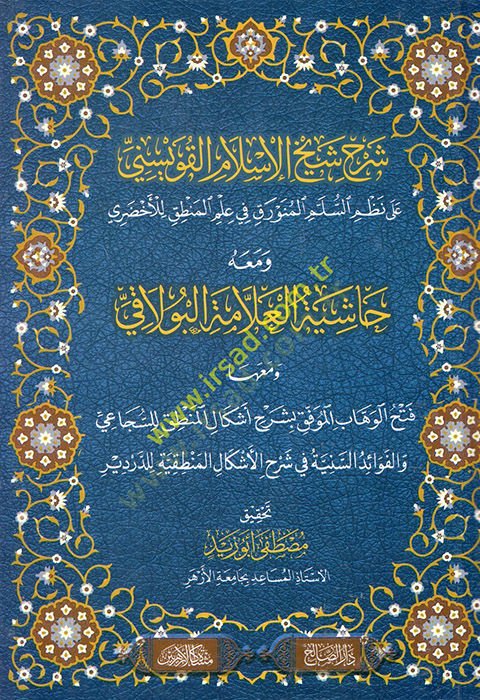 شَرْحُ شَيْخِ الْإِسْلَامِ الْقُوَيْسِنِيِّ
عَلَى نَظْمِ السُّلَّمِ الْمُنَوْرَقِ فِي عِلْمِ الْمَنْطِقِ لِلْأَخْضَرِي
وَمَعَهُ
حَاشِيَةُ الْعَلَّامَةِ الْبُولَاقِيِّ
وَمَعَهَا
فَتْحُ الْوَهَّابِ الْمُوَفِّقِ بِشَرْحِ أَشْكَالِ الْمَنْطِقِ لِلسُّجَاعِيِّ
وَالْفَوَائِدُ السَّنِيَّةُ فِي شَرْحِ الْأَشْكَالِ الْمَنْطِقِيَّةِ لِلدَّرْدِيرِ
تَحْقِيق
مُصْطَفَى أَبُو زَيْد
الأُسْتَاذِ الْمُسَاعِدِ بِجَامِعَةِ الْأَزْهَرِ
دَارُ الصَّالِحِ
www.irsad.com.tr